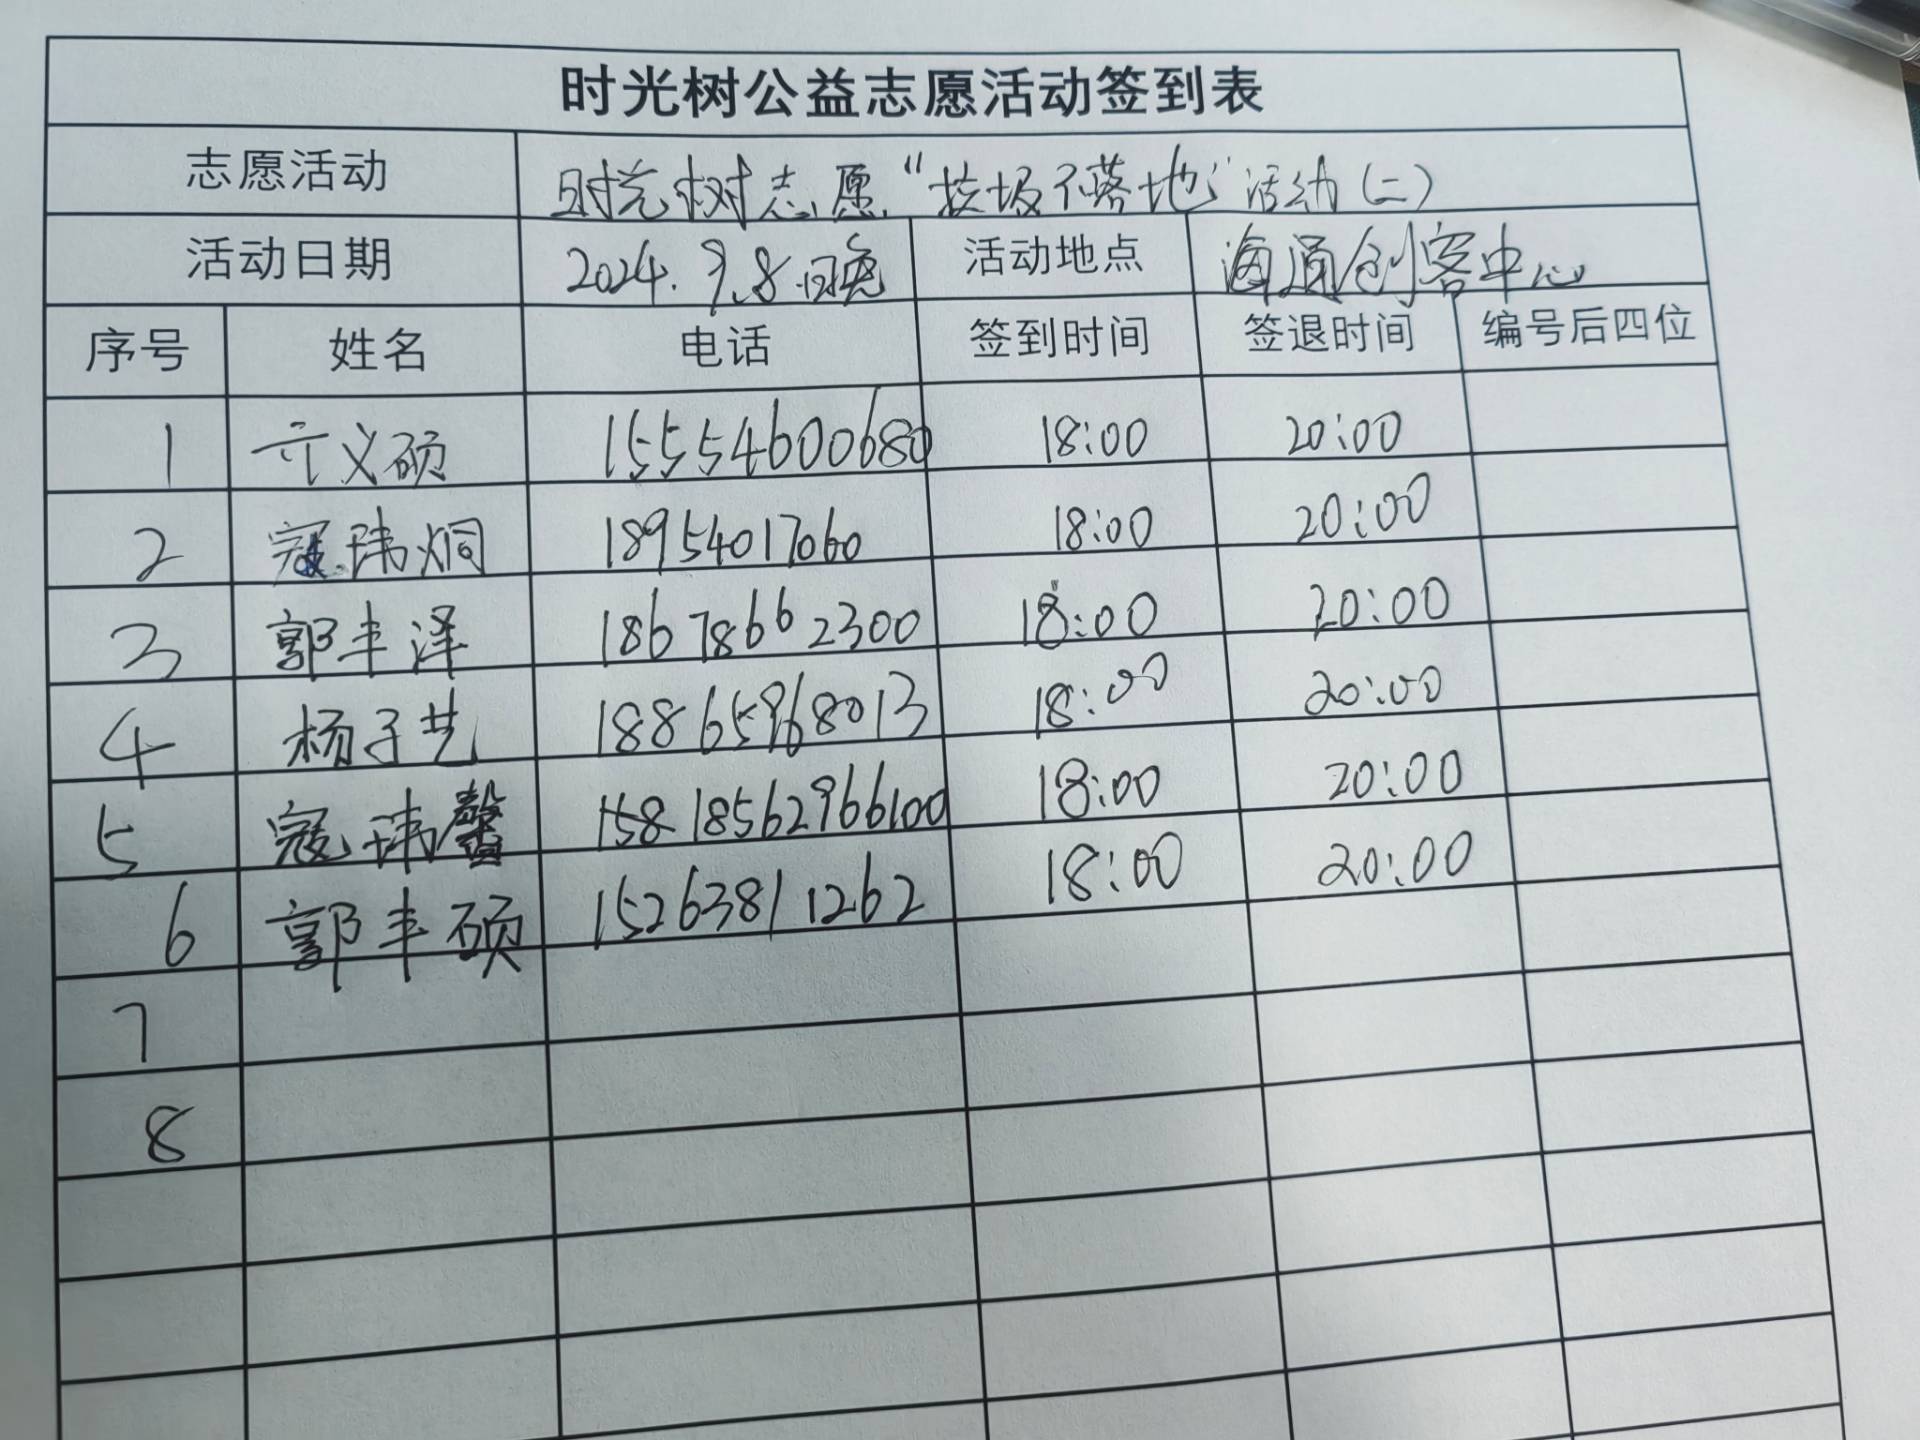 时光树公益志愿活动签到表
志愿活动 时光树志愿“垃圾不落地”活动（二）
活动日期 2024.9.8日晚 活动地点 海通创客中心
序号 姓名 电话 签到时间 签退时间 编号后四位
1 亓义硕 15554600680 18:00 20:00
2 寇玮炯 18954017060 18:00 20:00
3 郭丰泽 18678662300 18:00 20:00
4 杨子艺 18865968013 18:00 20:00
5 寇玮馨 18562966100 18:00 20:00
6 郭丰硕 15263811262 18:00 20:00
7
8